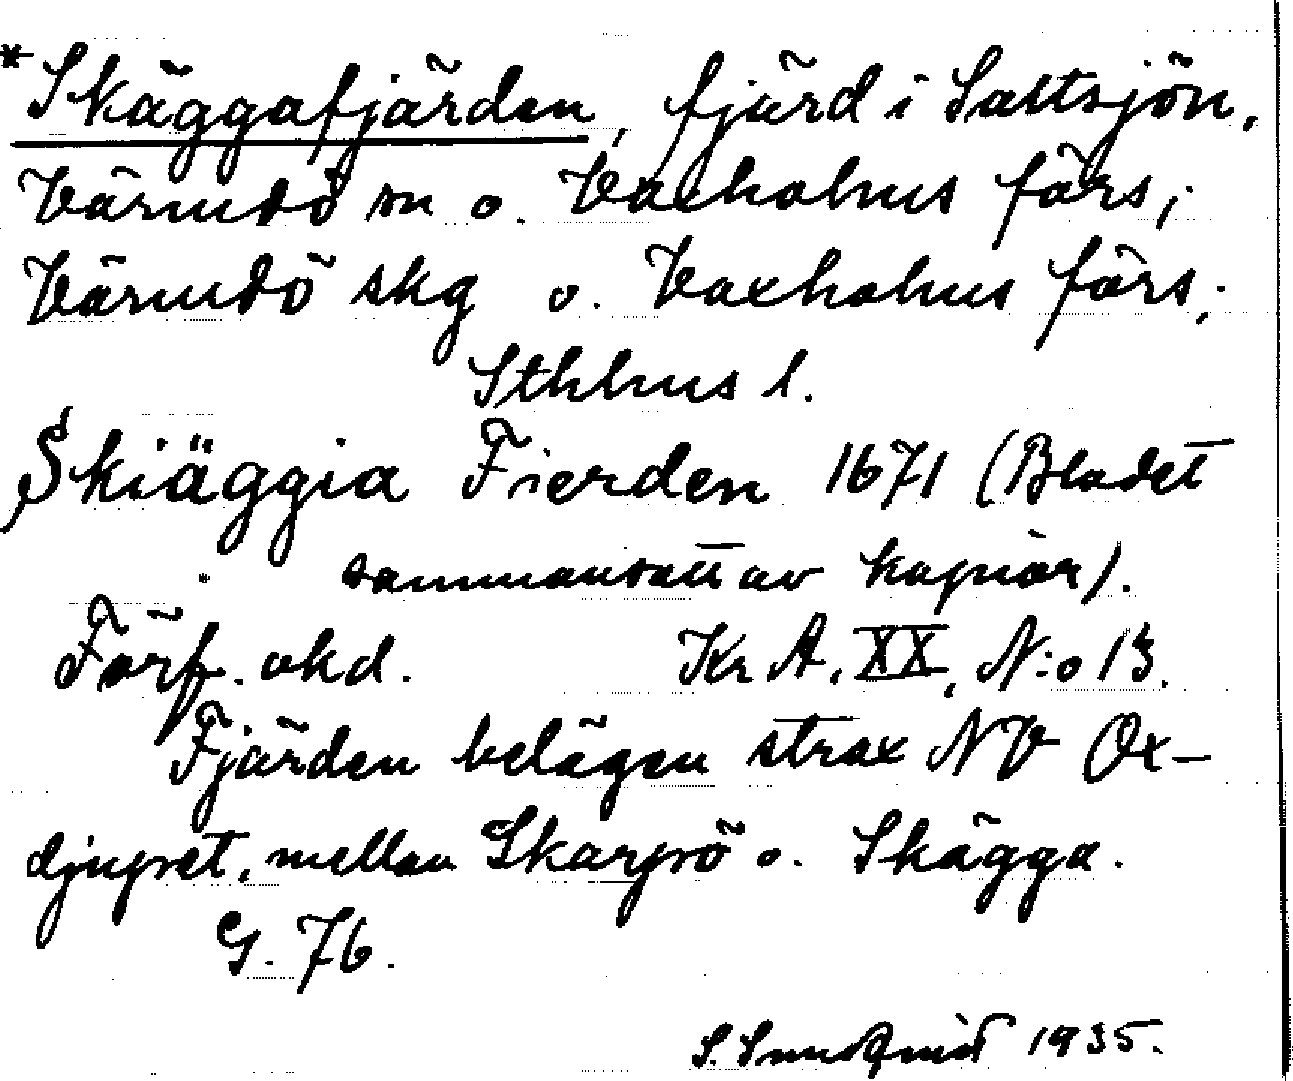 *Skäggafjärden, fjärd i Saltsjön,
Värmdö sn o. Vaxholms förs;
Värmdö skg o. Vaxholms förs;
Sthlms l.
Skiäggia Fierden 1671 (Bladet
sammansatt av kopior).
Förf. okd. Kr A, XX, N:o 13.
Fjärden belägen strax NV Ox-
djupet, mellan Skarpö o. Skägga.
G. 76.
S. 1935.